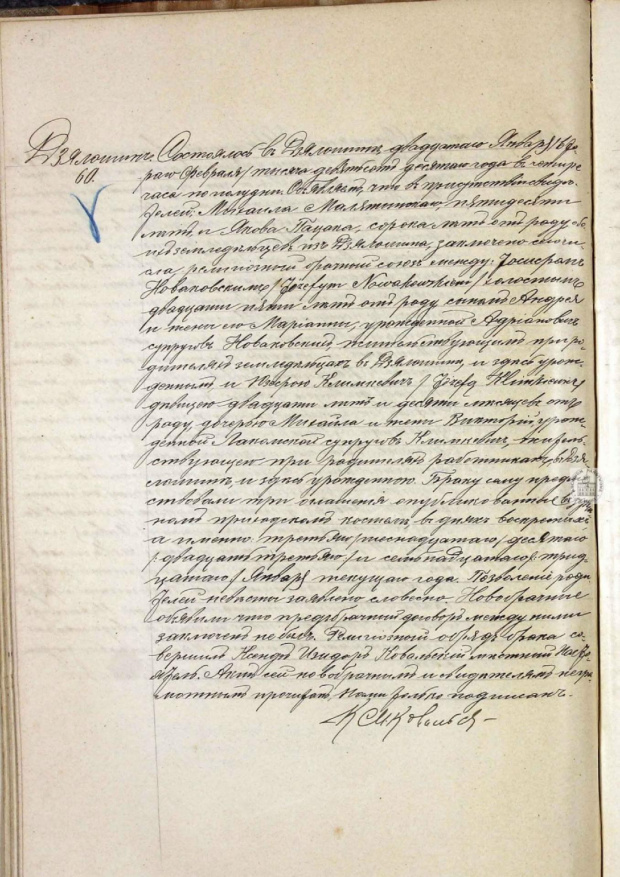 Дзялошинъ.
60.
Состоялось въ Дзялошинѣ двадцатаго Января /вто
раго Февраля/ тысяча девятьсотъ десятаго года въ четыре
часа по полудни. Объявляемъ, что въ присутствіи свидѣ-
телей, Михаила пятидесяти
лѣтъ и Якова сорока лѣтъ отъ роду обо
ихъ земледѣльцевъ изъ Дзялошина, заключенъ сего чи
сла религіозный брачный союзъ между: Іосифомъ
Новаковскимъ /Józefem Nowakowskim/ холостымъ
двадцати пяти лѣтъ отъ роду сыномъ Андрея
и жены его Маріанны, урожденной Адріановичъ
супруговъ Новаковскихъ жительствующимъ при ро-
дителяхъ земледѣльцахъ въ Дзялошинѣ, и здѣсь урож-
деннымъ и Юзефою Климкевичъ /Józefą
дѣвицею двадцати лѣтъ и десяти мѣсяцевъ отъ
роду, дочерью Михаила и жены Викторіи урож-
денной супруговъ Климкевичъ, житель-
ствующею при родителяхъ работникахъ въ Дзя
лошинѣ и здѣсь урожденною. Браку сему предше-
ствовали три оглашенія опубликованныя въ здѣш
номъ приходскомъ костелѣ, въ дняхъ воскресныхъ
а именно: третьяго /шестнадцатаго/ десятаго
/двадцать третьяго/ и семьнадцатаго /трид
цатаго/ Января текущаго года. Позволеніе роди
телей невѣсты заявлено словесно. Новобрачные
объявили что предбрачный договоръ между ними
заключенъ не былъ. Религіозный обрядъ брака со-
вершилъ Ксендзъ Изидоръ Ковальскій мѣстный Насто
ятель. Актъ сей новобрачнымъ и свидѣтелямъ негра
мотнымъ прочитанъ, Нами только подписанъ.